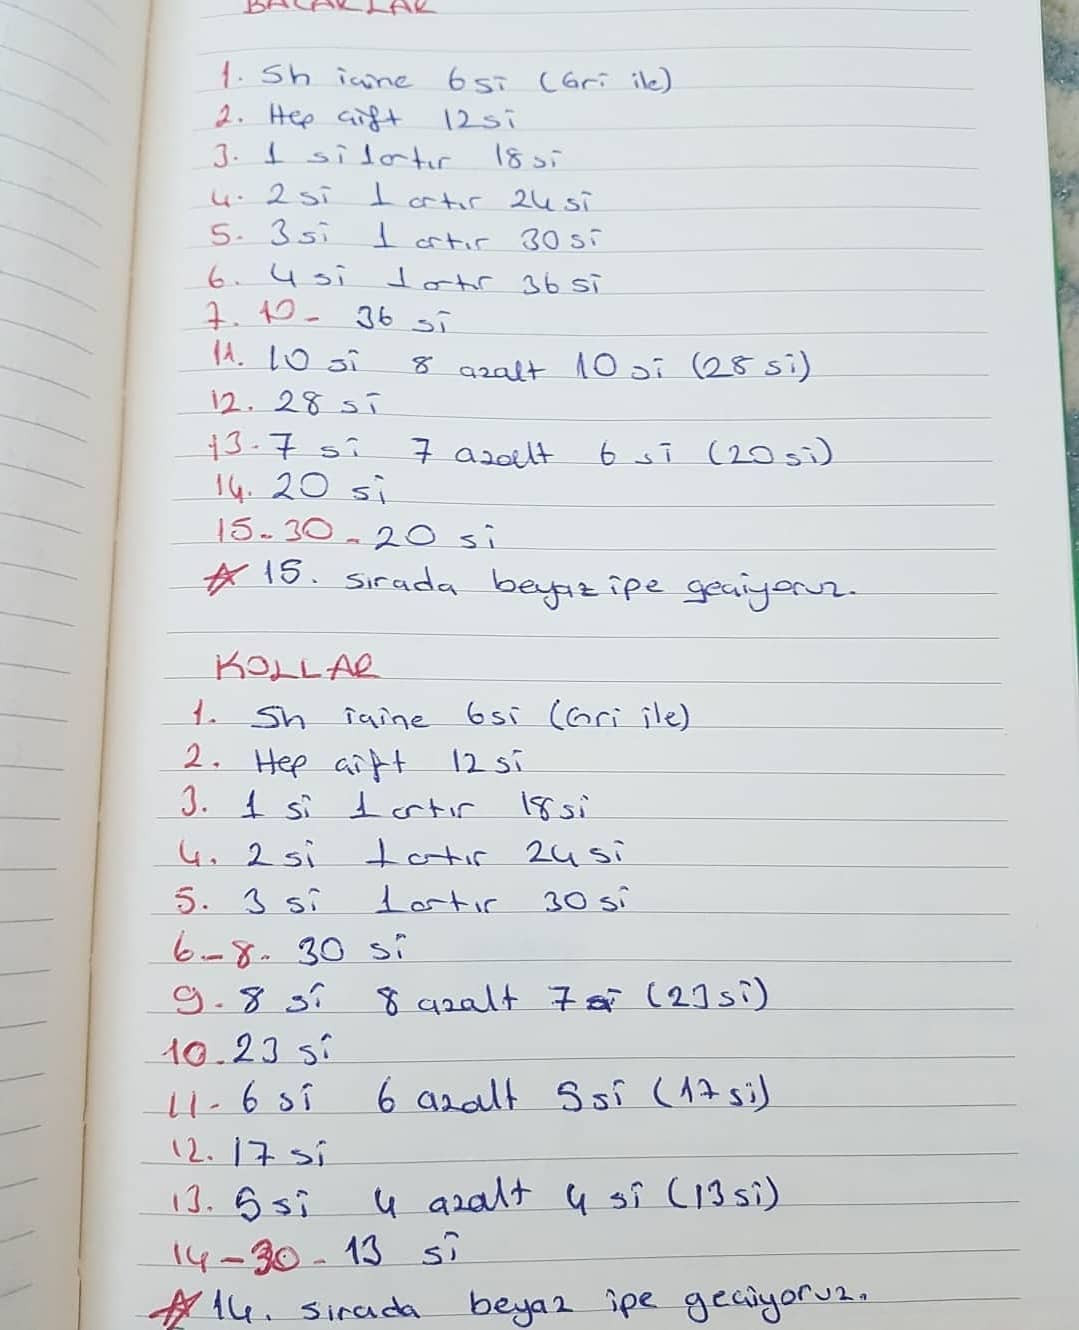 BACAKLAR
1. Sh içine 6 si (Gri ile)
2. Hep çift 12 si
3. 1 si 1 artır 18 si
4. 2 si 1 artır 24 si
5. 3 si 1 artır 30 si
6. 4 si 1 artır 36 si
7. 10 - 36 si
11. 10 si 8 azalt 10 si (28 si)
12. 28 si
13. 7 si 7 azalt 6 si (20 si)
14. 20 si
15-30 - 20 si
☆ 15. sırada beyaz ipe geçiyoruz.
KOLLAR
1. Sh içine 6 si (Gri ile)
2. Hep çift 12 si
3. 1 si 1 artır 18 si
4. 2 si 1 artır 24 si
5. 3 si 1 artır 30 si
6-8- 30 si
9. 8 si 8 azalt 7 si (23 si)
10. 23 si
11- 6 si 6 azalt 5 si (17 si)
12. 17 si
13. 5 si 4 azalt 4 si (13 si)
14-30- 13 si
☆ 14. sırada beyaz ipe geçiyoruz.